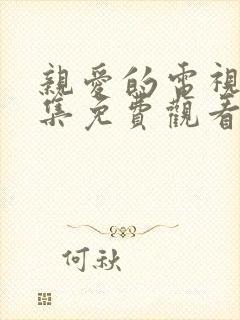 親愛的電視
集免費觀看
何秋